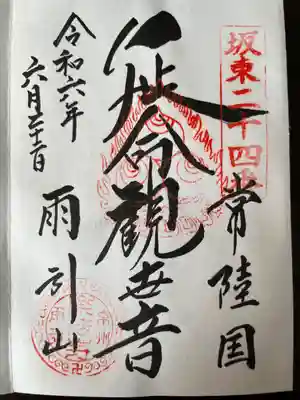 坂東二十四番
常陸国
延命觀世音
令和六年
六月
雨引山